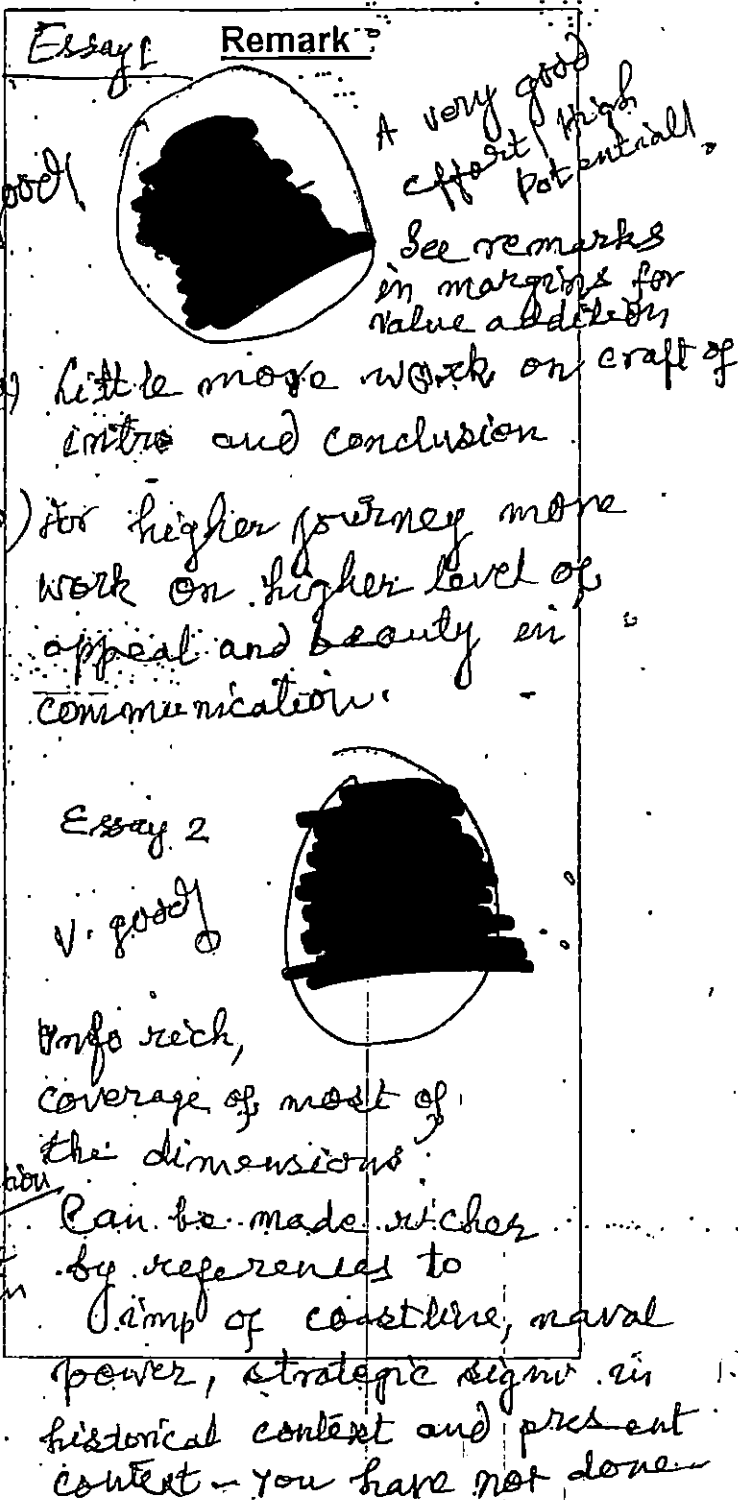 Essay 1
Remark
A very good
effort / High
Potential.
See remarks
in margins for
value addition
Little more work on craft of
intro and conclusion.
) For higher journey more
work on higher level of
appeal and beauty in
communication.
Essay 2
V. good
Info rich,
coverage of most of
the dimensions.
Can be made richer
by references to
imp of coastline, naval
power, strategic signi in
historical context and present
context - You have not done